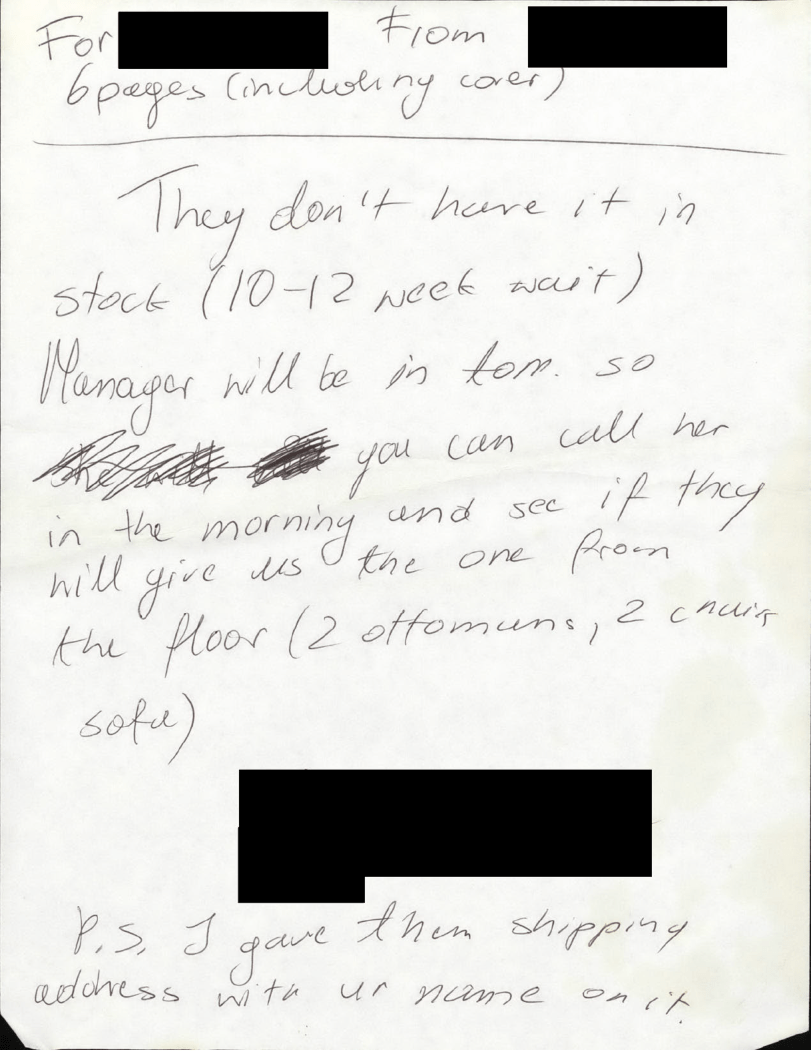 For From
6 pages (including cover)
They don't have it in
stock (10-12 week wait)
Manager will be in tom. so
you can call her
in the morning and see if they
will give us the one from
the floor (2 ottomans, 2 chairs
sofa)
P.S. I gave them shipping
address with ur name on it.